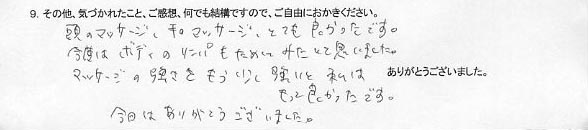 9. その他、気づかれたこと、ご感想、何でも結構ですので、ご自由におかきください。
頭のマッサージ、手のマッサージ、とても良かったです。
今度はボディのリンパもためしてみたいと思いました。
マッサージの強さをもう少し強いと私は
ありがとうございました。
もっと良かったです。
今日はありがとうございました。